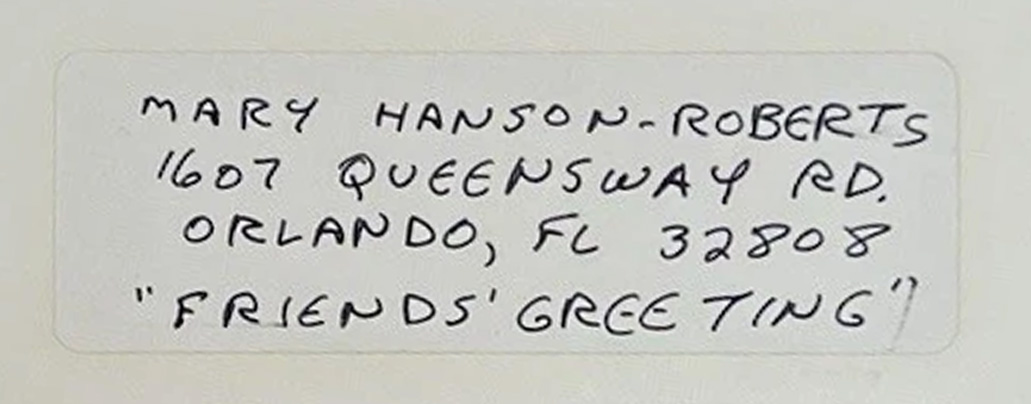 MARY HANSON-ROBERTS
1607 QUEENSWAY RD.
ORLANDO, FL 32808
"FRIENDS' GREETING"